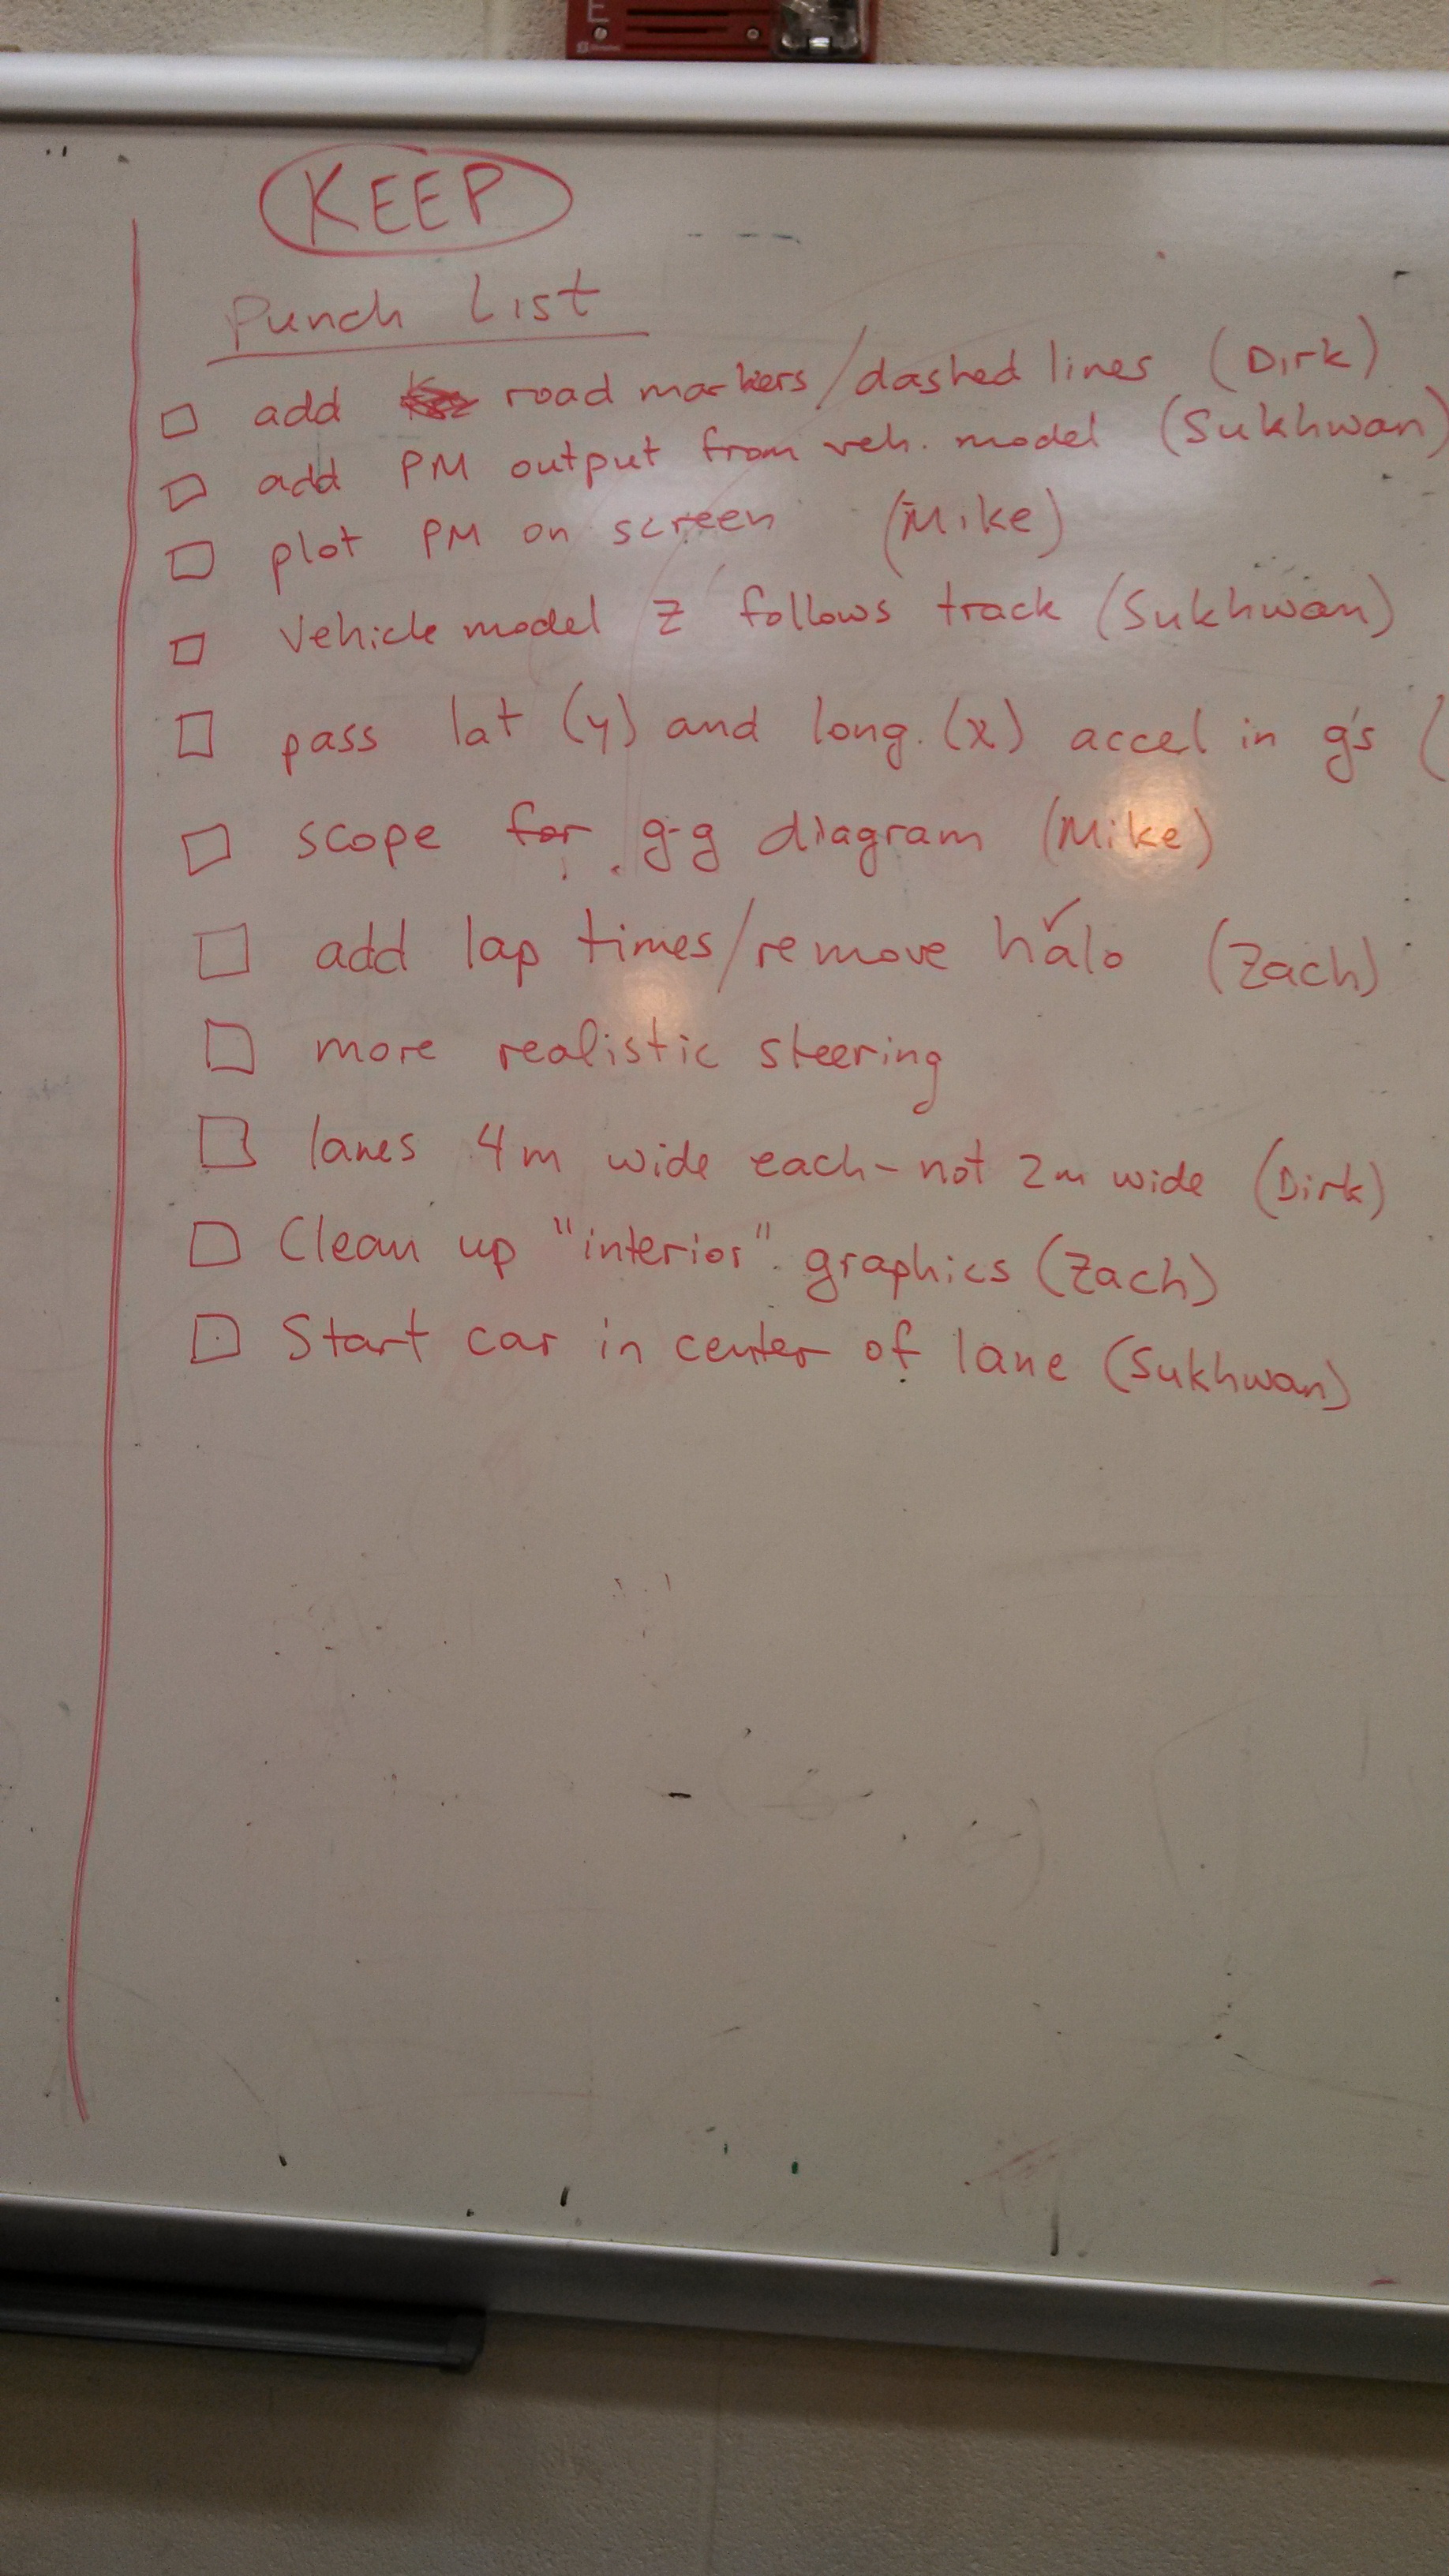 E
KEEP
Punch List
☐ add road markers/dashed lines (Dirk)
☐ add PM output from veh. model (Sukhwan)
☐ plot PM on screen (Mike)
☐ Vehicle model z follows track (Sukhwan)
☐ pass lat (y) and long. (x) accel in g's (
☐ scope for g-g diagram (Mike)
☐ add lap times/remove halo ✓ (Zach)
☐ more realistic steering
☐ lanes 4m wide each - not 2m wide (Dirk)
☐ Clean up "interior" graphics (Zach)
☐ Start car in center of lane (Sukhwan)